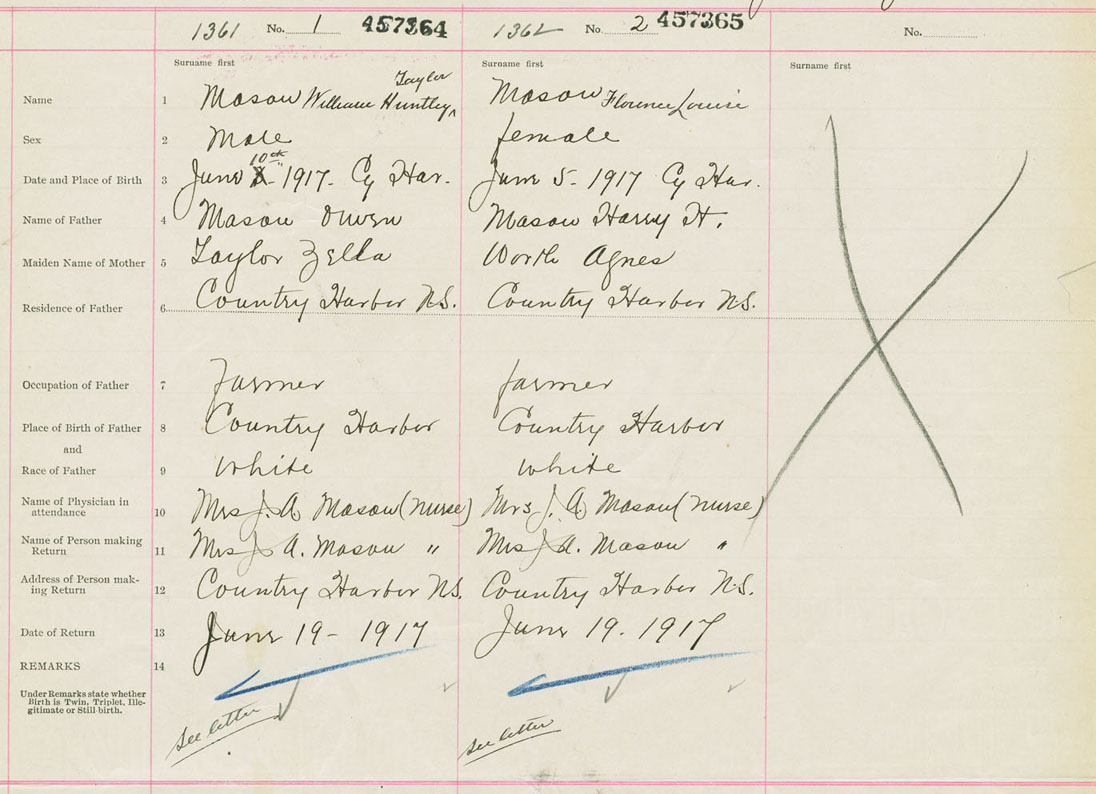 1361 No. 1 457364 1362 No. 2 457365 No.
Surname first Surname first Surname first
Taylor
Name 1 Mason William Huntley ^ Mason Florence Louise
Sex 2 Male female
10th
Date and Place of Birth 3 June - 1917 - Cy Har. June 5 - 1917 Cy Har.
Name of Father 4 Mason Owen Mason Harry H.
Maiden Name of Mother 5 Taylor Zella Worth Agnes
Residence of Father 6 Country Harbor N.S. Country Harbor N.S.
Occupation of Father 7 Farmer farmer
Place of Birth of Father 8 Country Harbor Country Harbor
and
Race of Father 9 White white
Name of Physician in
attendance 10 Mrs J. A. Mason (nurse) Mrs J. A. Mason (nurse)
Name of Person making
Return 11 Mrs J. A. Mason " Mrs J. A. Mason "
Address of Person mak-
ing Return 12 Country Harbor N.S. Country Harbor N.S.
Date of Return 13 June 19 - 1917 June 19. 1917
REMARKS 14
Under Remarks state whether
Birth is Twin, Triplet, Ille-
gitimate or Still-birth.
See letter See letter